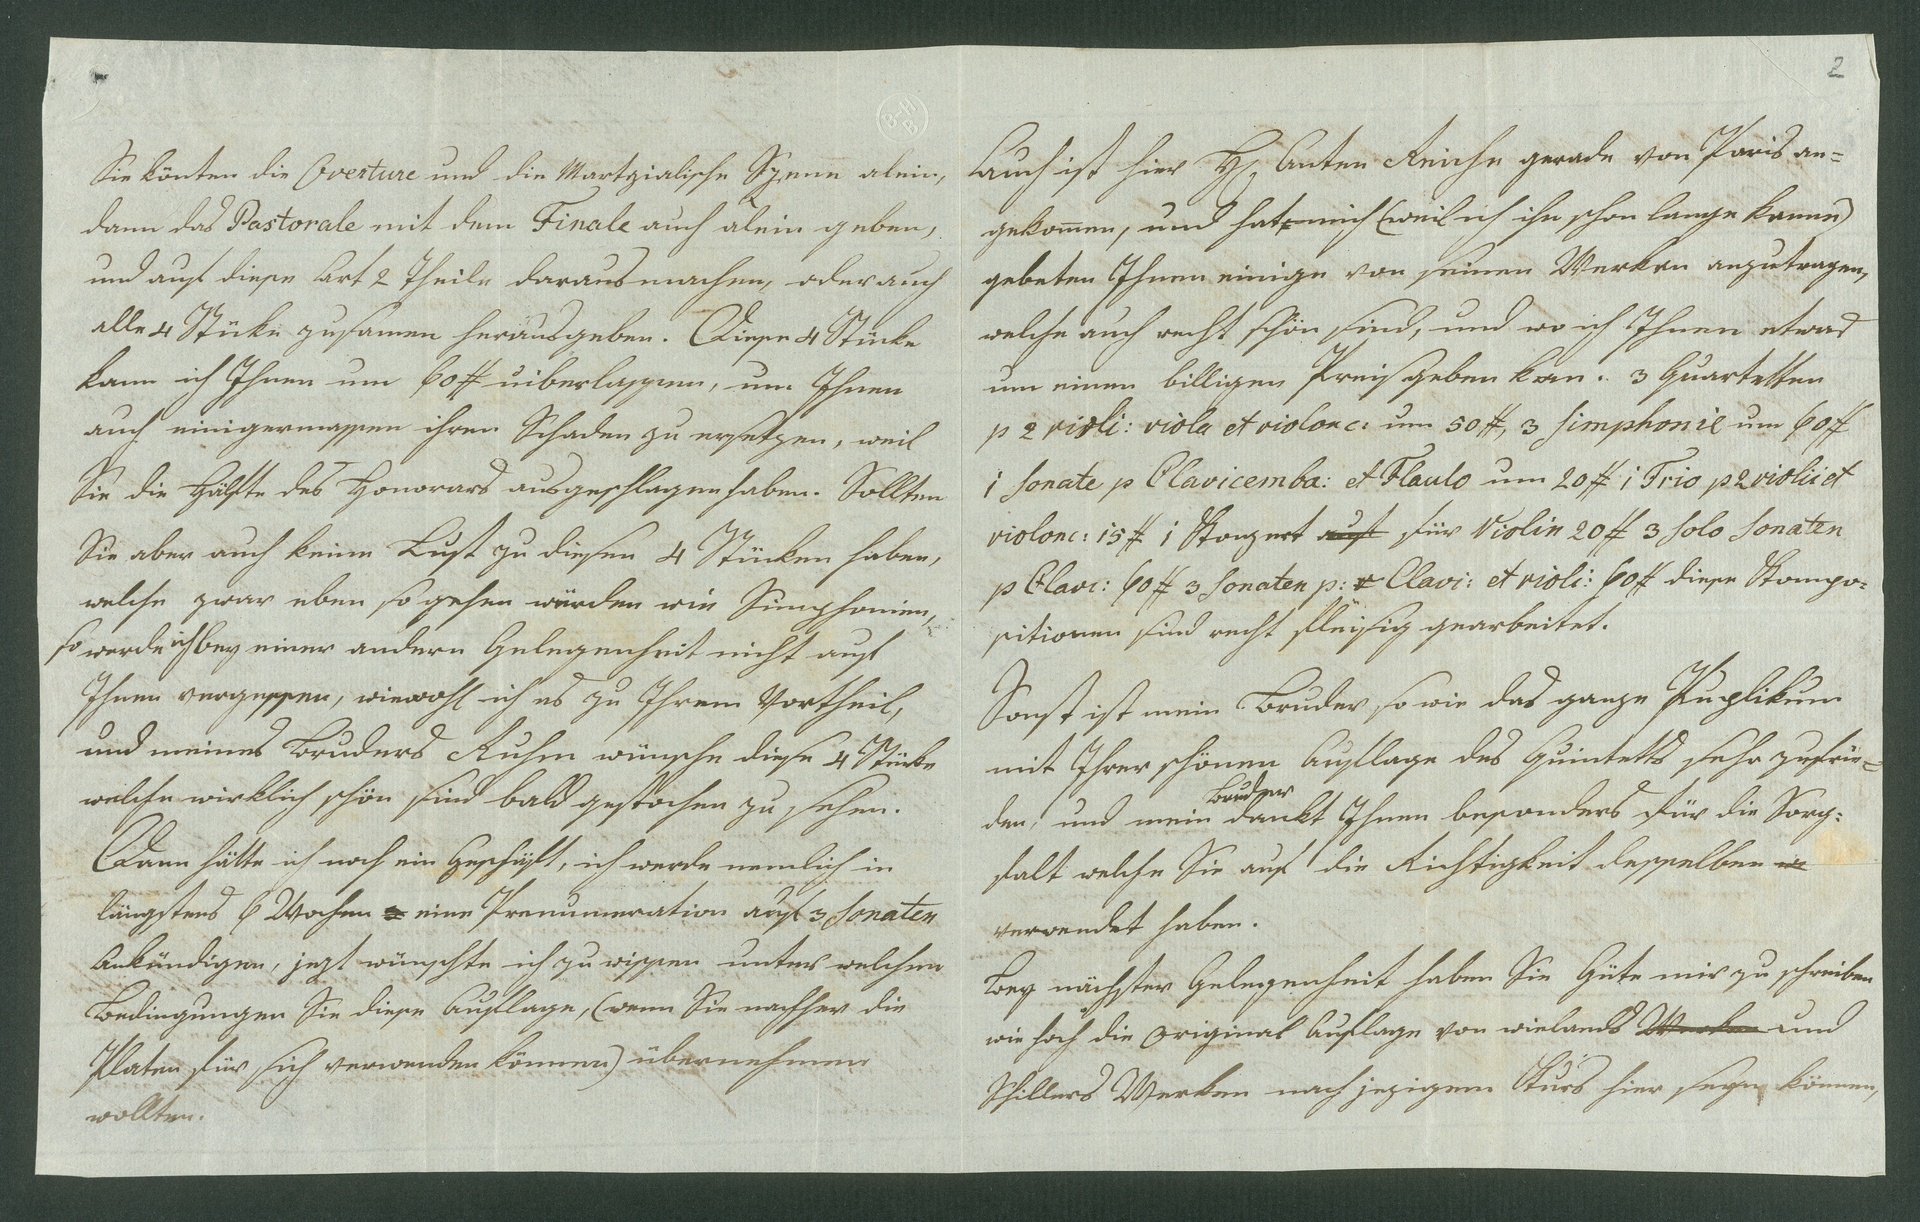 Sie könten die Overture und die Martzialische Szenn alein,
dann das Pastorale mit dem Finale auch alein geben,
und auf diese Art 2 Theile daraus machen, oder auch
alle 4 Stücke zusamen herausgeben. Diese 4 Stücke
kann ich Ihnen um 60 # uiberlassen, um Ihnen
auch einigermassen ihren Schaden zu ersetzen, weil
Sie die Hälfte des Honorars ausgeschlagen haben. Sollten
Sie aber auch keine Lust zu diesen 4 Stücken haben,
welche zwar eben so gehen würden wie Simphonien,
so werde ich bey einer andern Gelegenheit nicht auf
Ihnen vergessen, wiewohl ich es zu Ihrem Vortheil,
und meines Bruders Ruhm wünsche diese 4 Stücke
welche wirklich schön sind bald gestochen zu sehen.
Dann hätte ich noch ein Geschäft, ich werde nemlich in
längstens 6 Wochen eine Prenumeration auf 3 Sonaten
Ankündigen, jezt wünschte ich zu wissen unter welchen
Bedingungen Sie diese Auflage, (wenn Sie nachher die
Platen für sich verwenden können) übernehmen
wollten.
2
Auch ist hier H. Anton Reiche gerade von Paris an=
gekommen, und hat mich (weil ich ihn schon lange kenne)
gebeten Ihnen einige von seinen Werken anzutragen,
welche auch recht schön sind, und wo ich Ihnen etwas
um einen billigen Preis geben kan. 3 Quartetten
p 2 violi: viola et violonc: um 50 #, 3 Simphonie um 60 #
1 Sonate p Clavicemba: et Flauto um 20 # 1 Trio p 2 violi: et
violonc: 15 # 1 Konzert auf für Violin 20 # 3 Solo Sonaten
p Clavi: 60 # 3 Sonaten p: Clavi: et violi: 60 # diese Kompo=
sitionen sind recht fleisig gearbeitet.
Sonst ist mein Bruder so wie das ganze Puplikum
mit Ihrer schönen Auflage des Quintetts sehr zufrie=
den, und mein Bruder dankt Ihnen besonders für die Sorg=
falt welche Sie auf die Richtigkeit desselben
verwendet haben.
Bey nächster Gelegenheit haben Sie Güte mir zu schreiben
wie hoch die Original Auflage von Wielands Werken und
Schillers Werken nach jezigem Kurs hier seyn können,